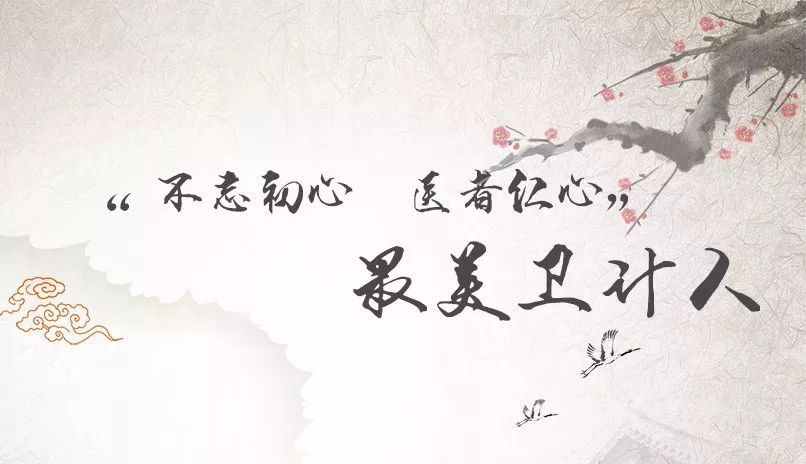 “不忘初心 医者仁心”
最美卫计人